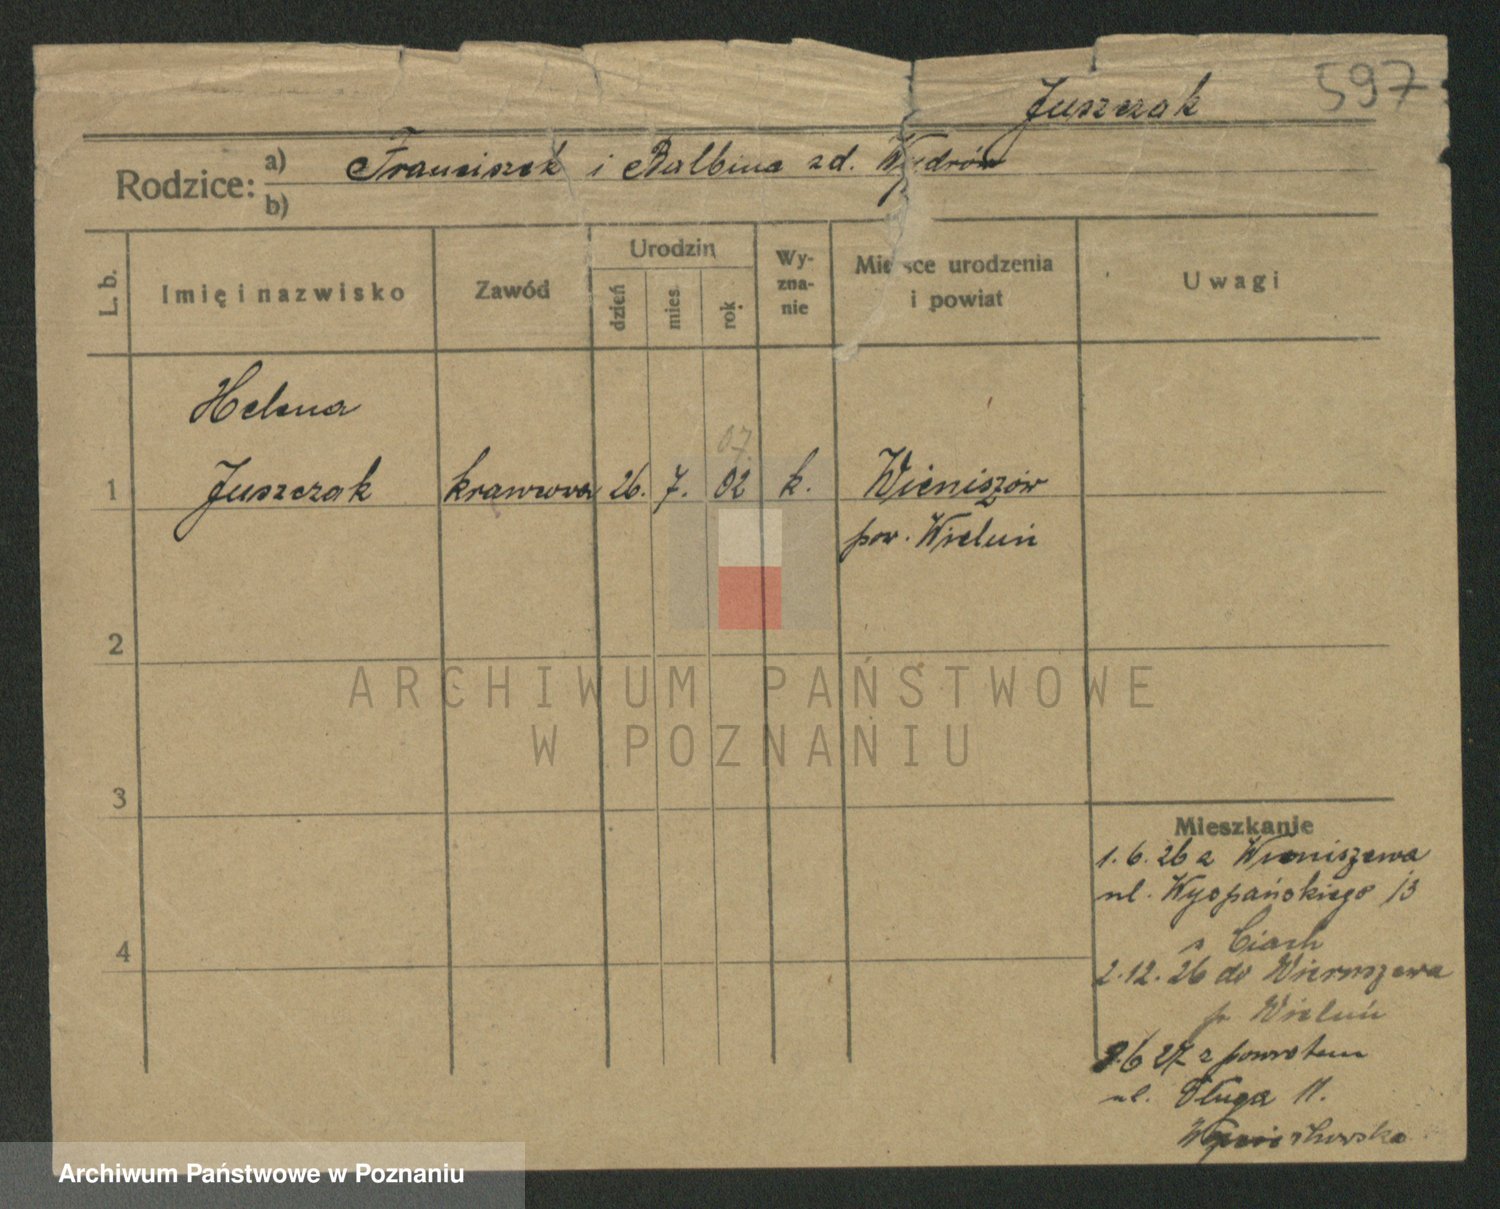 Juszczak 597
Rodzice: a) Franciszek i Balbina zd.
b)
L. b. Imię i nazwisko Zawód Urodzin dzień mies. rok Wyznanie Miejsce urodzenia i powiat Uwagi
Helena
07.
1 Juszczak krawcowa 26. 7. 02 k. Wieniszów
pow. Wieluń
2
ARCHIWUM PAŃSTWOWE
W POZNANIU
3
Mieszkanie
1.6.26 z Wieniszewa
ul. Wyspańskiego 13
s Ciach
4
2.12.26 do Wieruszewa
p. Wieluń
9.6 27 z powrotem
ul. Długa 11.
Archiwum Państwowe w Poznaniu